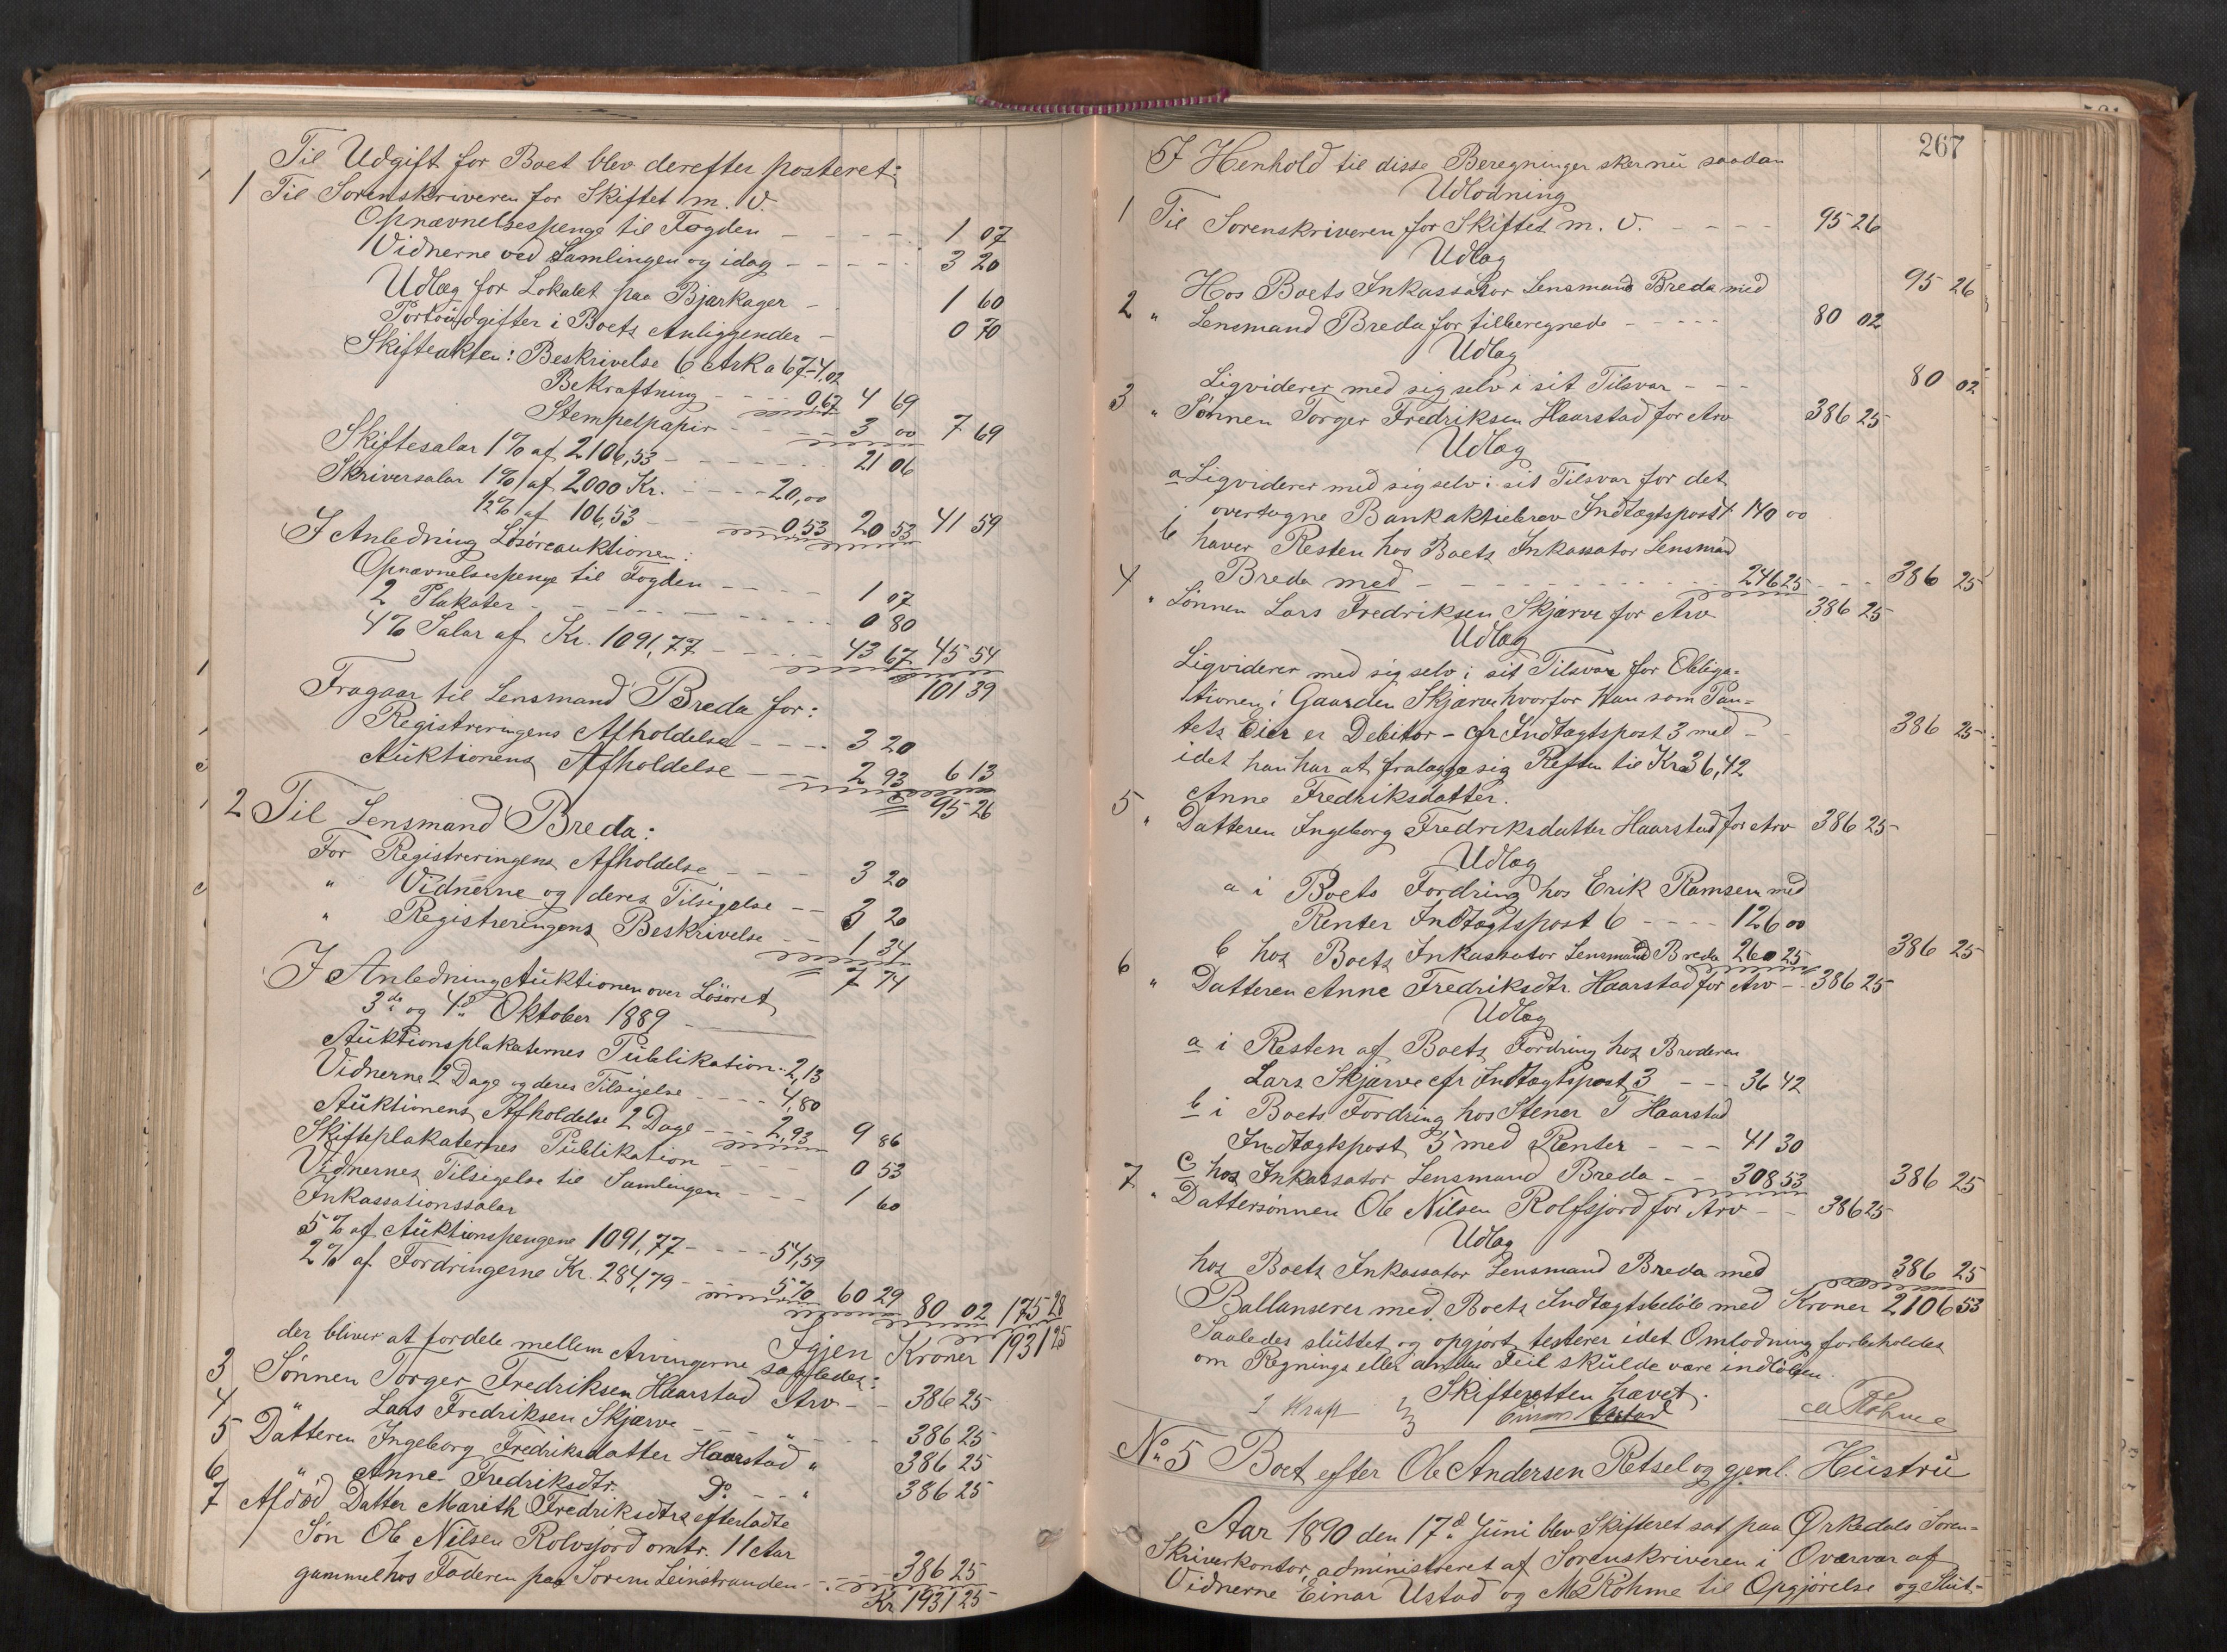 Til Udgift for Boet blev derefter posteret:
1 Til Sorenskriveren for Skiftet m. V.
Opnævnelsespenge til Fogden - - - - - 1 07
Vidnerne ved Samlingen og idag - - - - - 3 20
Udlæg for Lokalet paa Bjærkager - 1 60
Portoudgifter i Boets Anliggender - 0 70
Skifteakten: Beskrivelse 6 Ark a 67 - 4,02
Bekræftning - - - 0,67 4 69
Stempelpapir - - - - 3 00 7 69
Skiftesalær 1% af 2106,53 - - - - - - 21 06
Skriversalær 1% af 2000 Kr. - - - - 20,00
½% af 106,53 - - 0,53 20 53 41 59
I Anledning Løsøreauktionen:
Opnævnelsespenge til Fogden - - - - - 1 07
2 Plakater - - - - - - - - - 0 80
4% Salær af Kr. 1091,77 - - - - - 43 67 45 54
101 39
Fragaar til Lensmand Breda for:
Registreringens Afholdelse - - - - 3 20
Auktionens Afholdelse - - - 2 93 6 13
95 26
2 Til Lensmand Breda:
For Registreringens Afholdelse - - - - 3 20
" Vidnerne og deres Tilsigelse - - 3 20
" Registreringens Beskrivelse - - 1 34
7 74
I Anledning Auktionen over Løsøret
3die og 4de Oktober 1889 -
Auktionsplakaternes Publikation - 2,13
Vidnerne 2 Dage og deres Tilsigelse - - - - 4,80
Auktionens Afholdelse 2 Dage - - - 2,93 9 86
Skifteplakaternes Publikation - - - - 0 53
Vidnernes Tilsigelse til Samlingen - - - 1 60
Inkassationssalær
5% af Auktionspengene 1091,77 - - - - - 54,59
2% af Fordringerne Kr. 284,79 - - - 5,70 60 29 80 02 175 28
Igjen Kroner 1931 25
der bliver at fordele mellem Arvingerne saaledes:
3 Sønnen Torger Fredriksen Haarstad Arv - - 386 25
4 " Lars Fredriksen Skjærve - - - - " - - - 386 25
5 Datteren Ingeborg Fredriksdatter Haarstad " 386 25
6 " Anne Fredriksdtr. Do - - " 386 25
7 Afdød Datter Marith Fredriksdtrs efterladte
Søn Ole Nilsen Rolvsjord omtr. 11 Aar
gammel hos Faderen paa Sørem Leinstranden - - 386 25
Kr 1931 25
267
I Henhold til disse Beregninger sker nu saadan
Udlodning
1 Til Sorenskriveren for Skiftet m. V. - - - - - 95 26
Udlæg
Hos Boets Inkassator Lensmand Breda med 95 26
2 " Lensmand Breda for tilberegnede - - - - - 80 02
Udlæg
Liqviderer med sig selv i sit Tilsvar - - - 80 02
3 " Sønnen Torger Fredriksen Haarstad for Arv 386 25
Udlæg
a Liqviderer med sig selv i sit Tilsvar for det
overtagne Bankaktiebrev Indtægtspost 4 140 00
b haver Resten hos Boets Inkassator Lensmand
Breda med - - - - - - - - - - 246 25 - - - 386 25
4 " Sønnen Lars Fredriksen Skjærve for Arv 386 25
Udlæg
Liqviderer med sig selv i sit Tilsvar for Obliga-
tionen i Gaarden Skjærve hvorfor han som Pan-
tets Eier er Debitor - cfr Indtægtspost 3 med - - 386 25
idet han har at fralægge sig Resten til Kr 36,42
Anne Fredriksdatter.
5 " Datteren Ingeborg Fredriksdatter Haarstad for Arv 386 25
Udlæg
a i Boets Fordring hos Erik Ramsem med
Renter Indtægtspost 6 - - - - 126 00
b hos Boets Inkassator Lensmand Breda 260 25 386 25
6 " Datteren Anne Fredriksdtr. Haarstad for Arv - - 386 25
Udlæg
a i Resten af Boets Fordring hos Broderen
Lars Skjærve cfr Indtægtspost 3 - - - 36 42
b i Boets Fordring hos Stener T Haarstad
Indtægtspost 5 med Renter - - - 41 30
c hos Inkassator Lensmand Breda - - 308 53 386 25
7 " Dattersønnen Ole Nilsen Rolfsjord for Arv - - 386 25
Udlæg
hos Boets Inkassator Lensmand Breda med 386 25
Ballanserer med Boets Indtægtsbeløb med Kroner 2106 53
Saaledes sluttet og opgjort testerer idet Omlodning forbeholdes
om Regnings eller anden Feil skulde være indløben.
Skifteretten hævet.
I Kraft Einar Ustad M Röhme
No 5 Boet efter Ole Andersen Retsel og gjenl. Hustru
Aar 1890 den 17de Juni blev Skifteret sat paa Ørkedals Soren-
skriverkontor, administreret af Sorenskriveren i Overvær af
Vidnerne Einar Ustad og M Röhme til Opgjørelse og Slut-